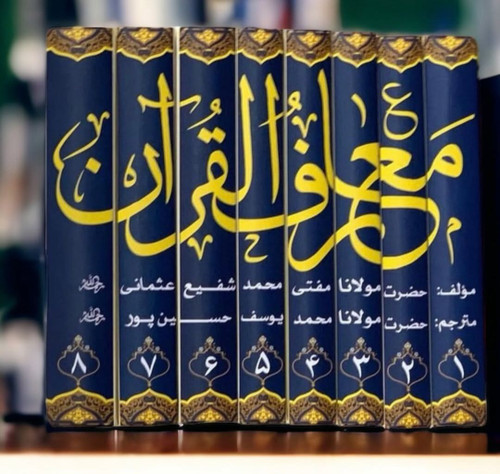 معارف القرآن
مؤلف: حضرت مولانا مفتی محمد شفیع عثمانی رحمه‌الله
مترجم: حضرت مولانا محمد یوسف حسین پور رحمه‌الله
۱ ۲ ۳ ۴ ۵ ۶ ۷ ۸